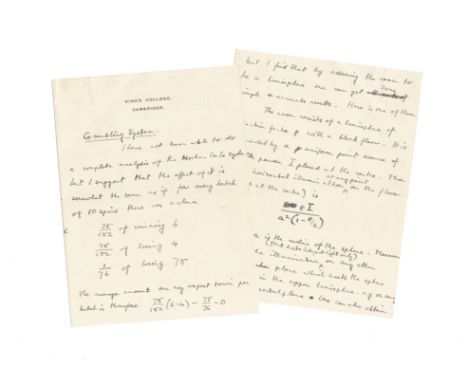 KING'S COLLEGE,
CAMBRIDGE.
Gambling System.
I have not been able to do
a complete analysis of the Monte Carlo System
but I suggest that the effect of it is
somewhat the same as if for every batch
of 10 spins there was a chance
75/152 of winning 6
75/152 of losing 4
1/76 of losing 75
The average amount one may expect to win per
batch is therefore 75/152 (6-4) - 75/76 = 0
but I find that by assuming the room to
be a hemisphere one can get some
simple & accurate results. Here is one of them
The room consists of a hemisphere of
with a black floor. It is
by a uniform point source of
power I placed at the centre. Then
horizontal illumination at any point on the floor
at the centre) is
ρI
a²(1-ρ/2)
a is the radius of the sphere. Moreover
the illumination on any other
plane which meets the sphere
in the upper hemisphere e.g. on any
One can also obtain